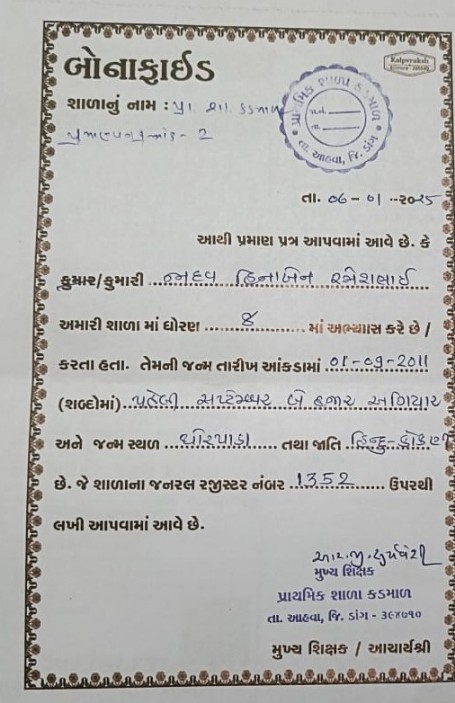 બોનાફાઈડ
Kalpvruksh
શાળાનું નામ : પ્રા. શા. કડમાળ
પ્રમાણપત્રક્રમાંક - 2
પ્રાથમિક શાળા કડમાળ
તા. આહવા, જિ. ડાંગ
તા. 06 - 01 - 2025
આથી પ્રમાણ પત્ર આપવામાં આવે છે. કે
કુમાર/કુમારી જાદવ હિનાબેન રમેશભાઈ
અમારી શાળા માં ધોરણ ૪ માં અભ્યાસ કરે છે /
કરતા હતા. તેમની જન્મ તારીખ આંકડામાં 01-09-2011
(શબ્દોમાં) પહેલી સપ્ટેમ્બર બે હજાર અગિયાર
અને જન્મ સ્થળ તથા જાતિ હિન્દુ-કોકણી
છે. જે શાળાના જનરલ રજીસ્ટર નંબર 1352 ઉપરથી
લખી આપવામાં આવે છે.
મુખ્ય શિક્ષક
પ્રાથમિક શાળા કડમાળ
તા. આહવા, જિ. ડાંગ - ૩૯૪૭૧૦
મુખ્ય શિક્ષક / આચાર્યશ્રી